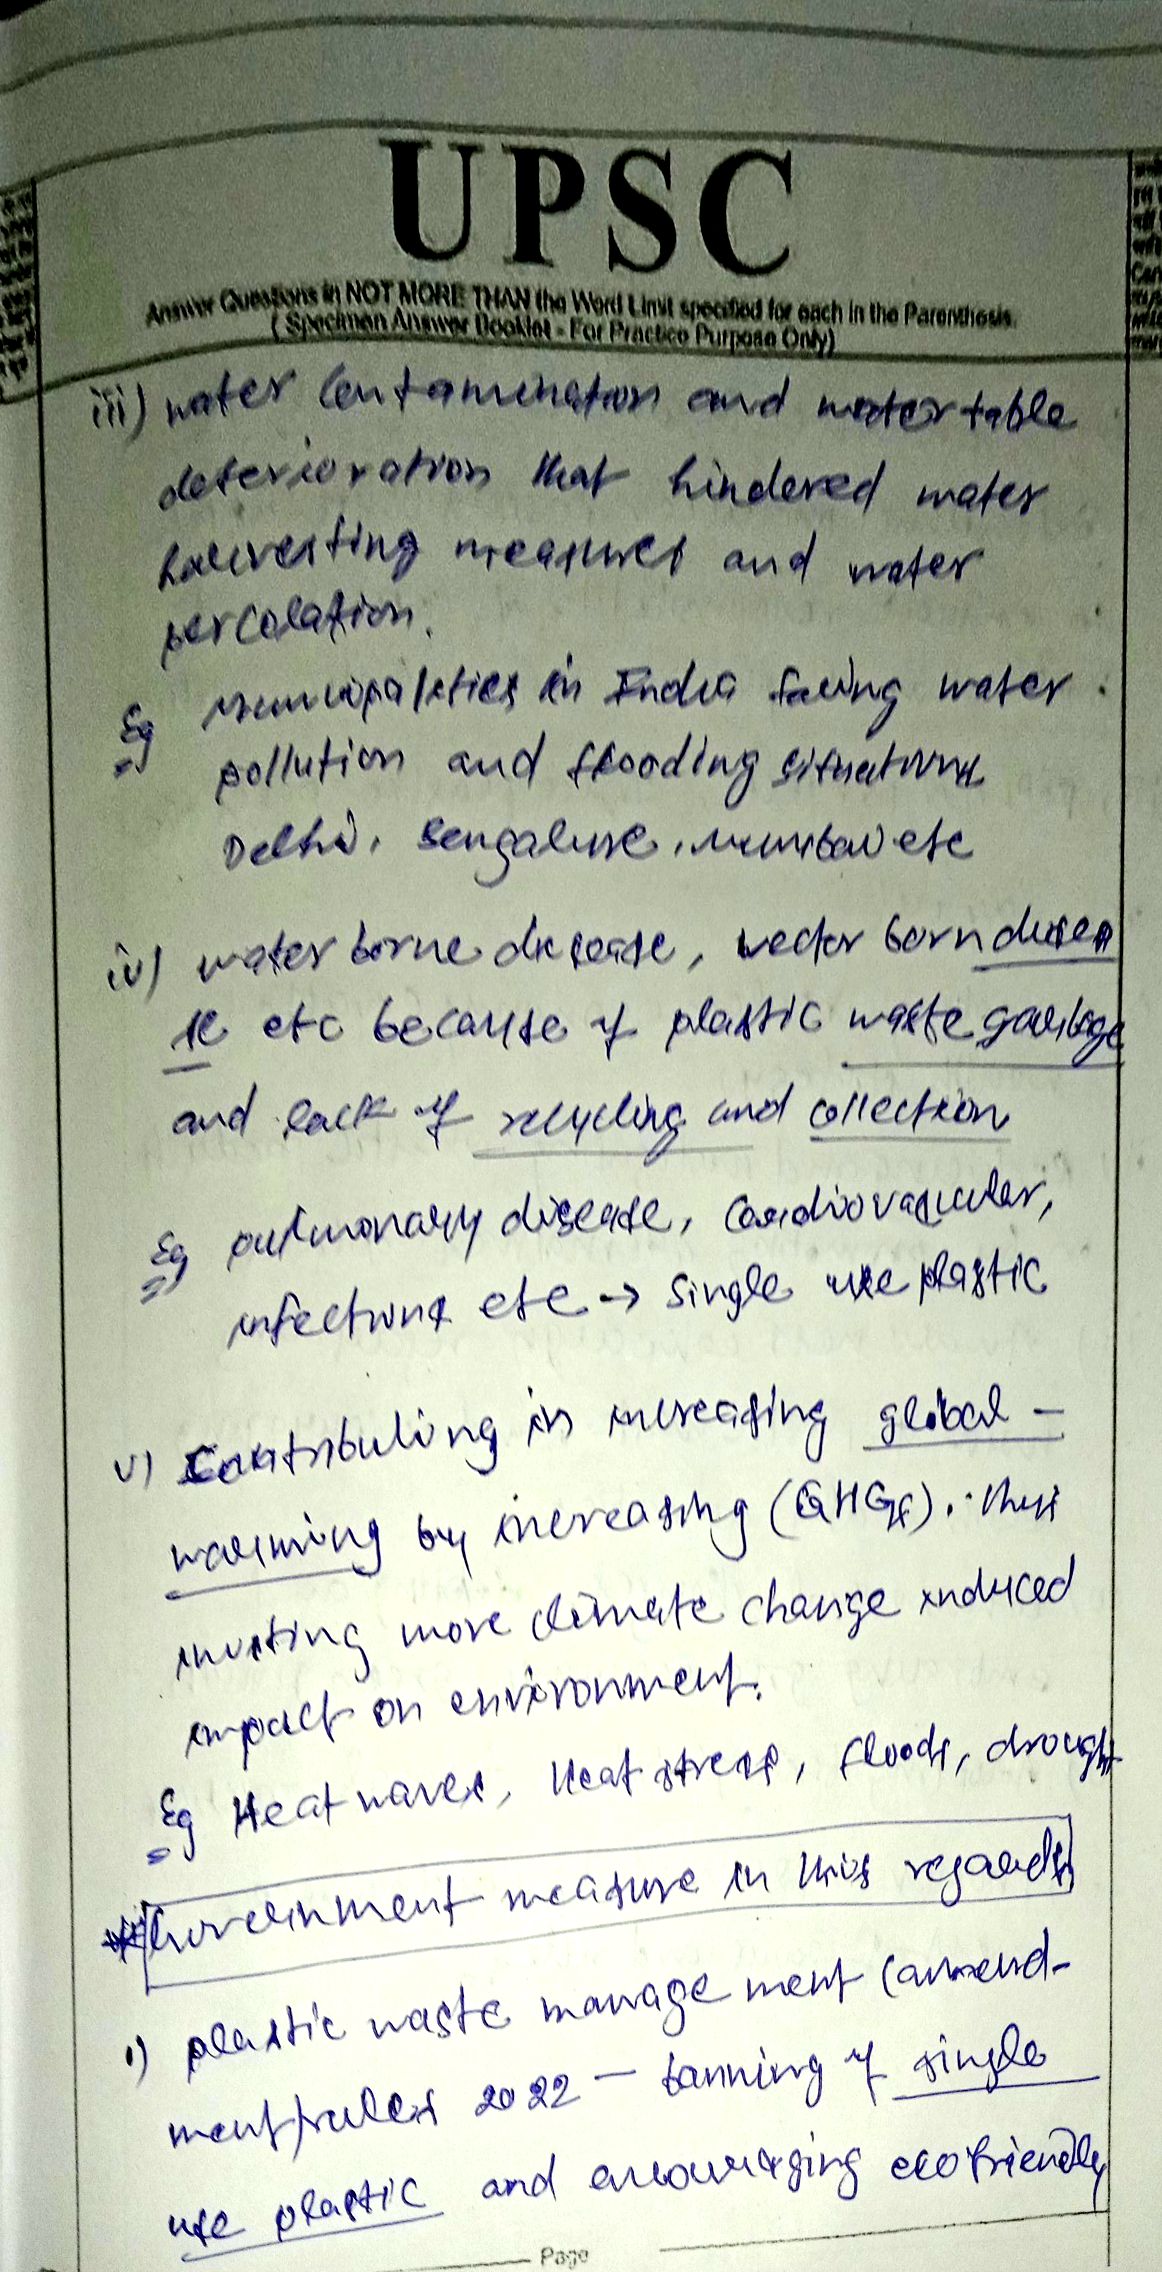 UPSC
Answer Questions in NOT MORE THAN the Word Limit specified for each in the Parenthesis.
( Specimen Answer Booklet - For Practice Purpose Only)
iii) water contamination and water table
deterioration that hindered water
harvesting measures and water
percolation.
Eg municipalities in India facing water
pollution and flooding situations
Delhi, Bengalure, Mumbai etc
iv) water borne disease, vector born disea
se etc because of plastic waste garbage
and lack of recycling and collection
Eg pulmonary disease, cardiovascular,
infections etc → single use plastic
v) Contributing in increasing global -
warming by increasing (GHGs). thus
inviting more climate change induced
impact on environment.
Eg Heat waves, Heat stress, floods, drought
Government measure in this regards
i) plastic waste manage ment (amend-
ment) rules 2022 - banning of single
use plastic and encouraging ecofriendly
Page